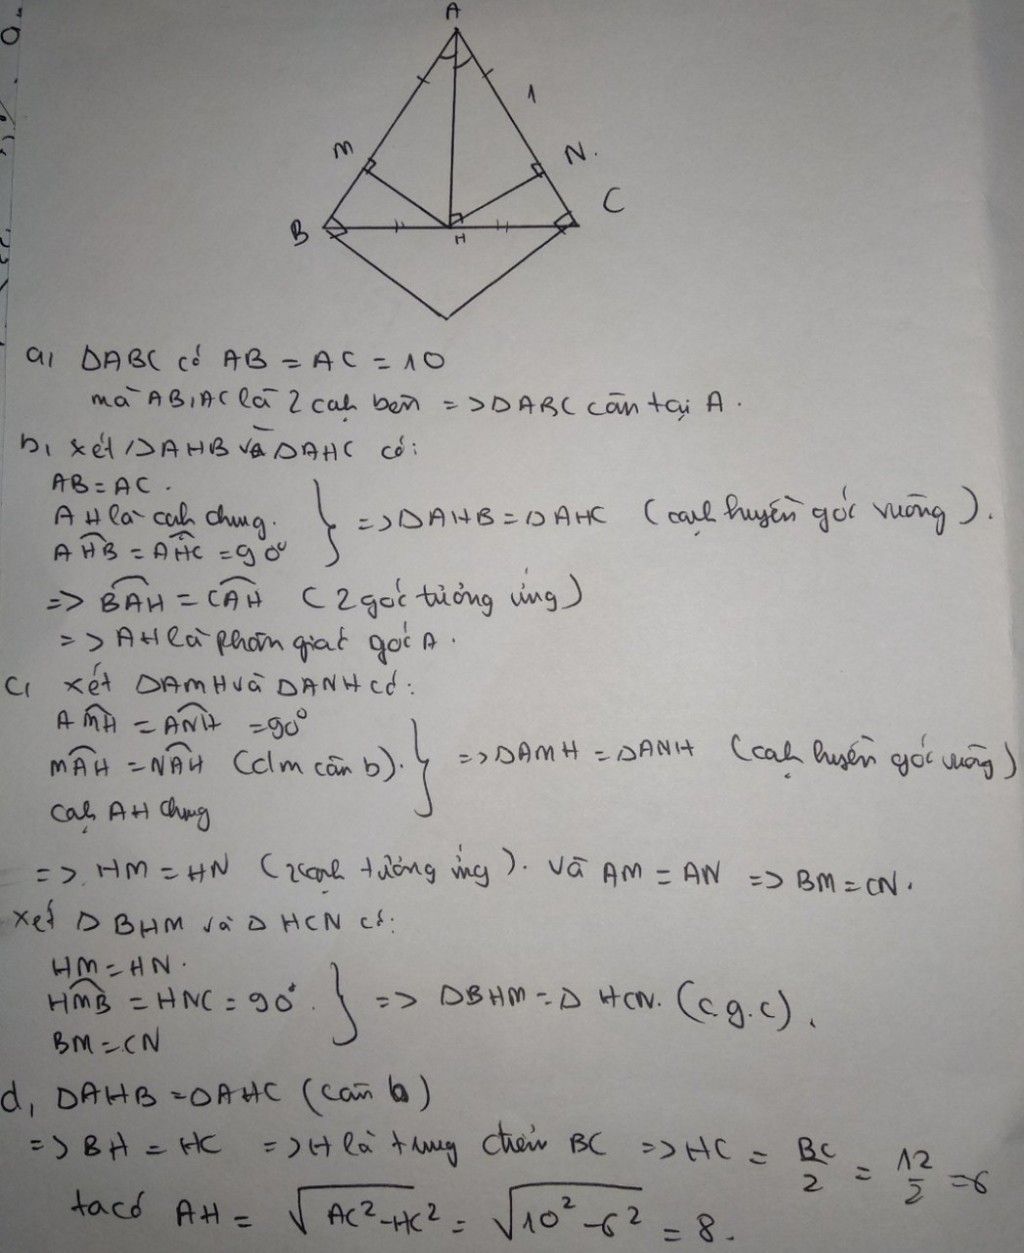 A
1
M
N.
B
C
H
a, ΔABC có AB = AC = 10
mà AB, AC là 2 cạh bên => ΔABC cân tại A.
b, xét ΔAHB và ΔAHC có:
AB = AC.
AH là cạh chung. } => ΔAHB = ΔAHC (cạh huyền góc vuông).
AHB = AHC = 90°
=> BAH = CAH (2 góc tưởng ứng)
=> AH là phân giác góc A.
c, xét ΔAMH và ΔANH có:
AMH = ANH = 90°
MAH = NAH (clm cân b). } => ΔAMH = ΔANH (cạh huyền góc vuông)
cạh AH chung
=> HM = HN (2 cạh tưởng ứng). và AM = AN => BM = CN.
xét Δ BHM và Δ HCN có:
HM = HN.
HMB = HNC = 90°. } => ΔBHM = Δ HCN. (c.g.c).
BM = CN
d, ΔAHB = ΔAHC (cân b)
=> BH = HC => H là trung BC => HC = BC/2 = 12/2 = 6
ta có AH = √AC² - HC² = √10² - 6² = 8.